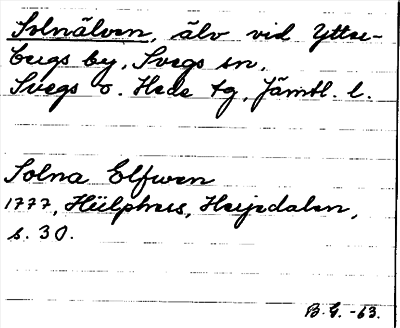 Solnälven, älv vid Ytter-
bergs by, Svegs sn,
Svegs o. Hede tg, Jämtl. l.
Solna Elfwen
1777, Hülphers, Herjedalen,
s. 30.
B.G. -63.